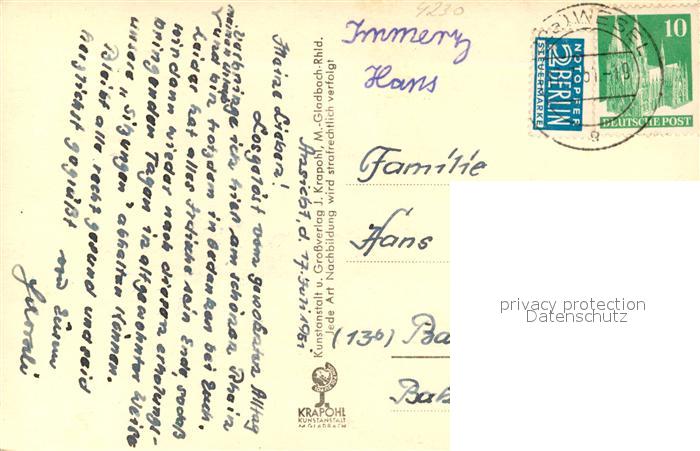 4230
Immerz
Hans
(22a) WESEL
51.-19
a
NOTOPFER
2 BERLIN
STEUERMARKE
10
DEUTSCHE POST
Familie
Hans
(13b) Ba
Bak
privacy protection
Datenschutz
Kunstanstalt u. Großverlag J. Krapohl, M.-Gladbach-Rhld.
Jede Art Nachbildung wird strafrechtlich verfolgt
KRAPOHL
KUNSTANSTALT
M.GLADBACH
d. 17. Juni 1951.
Meine Lieben!
Losgelöst vom gewohnten Alltag
verbringe ich hier am schönen Rhein
meinen Urlaub
und bin trotzdem in Gedanken bei Euch.
Leider hat alles Irdische sein Ende, sodaß
wir dann wieder nach diesen erholung-
bringenden Tagen in altgewohnter Weise
unsere „Sitzungen" abhalten können.
Bleibt alle recht gesund und seid
herzlichst gegrüßt
von Eurem